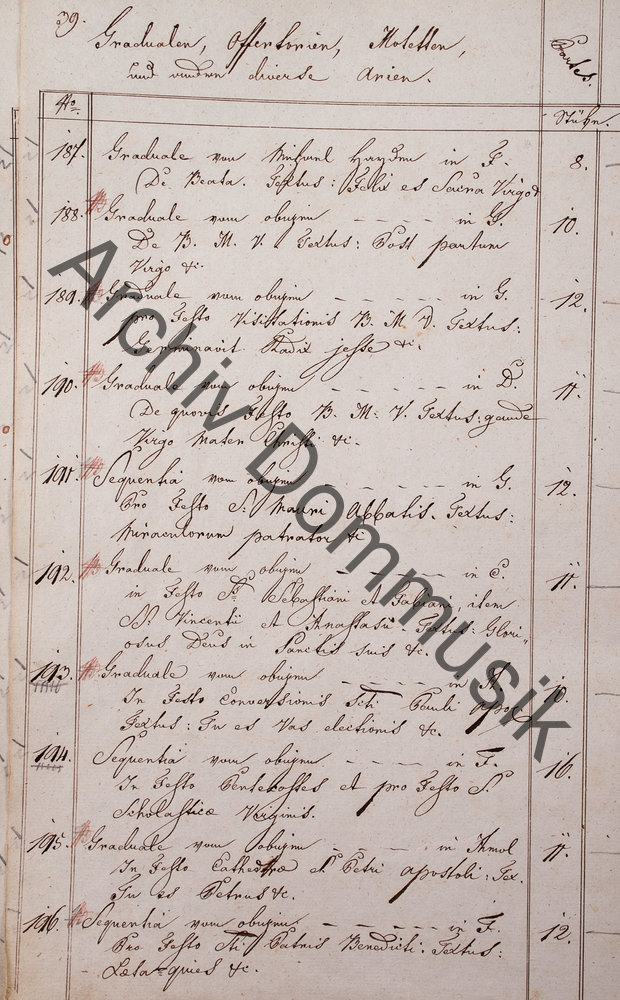 39.
Gradualen, Offertorien, Motetten,
und andere diverse Arien.
Partes.
No.
Stühn.
187. Graduale vom Michael Haydn in F. 8.
De Beata. Textus: Felix es Sacra Virgo
188. Graduale vom obigen - - - - - in G. 10.
De B. M. V. Textus: Post partum
Virgo &c.
189. Graduale vom obigen - - - - - in G. 12.
pro Festo Visitationis B. M. V. Textus:
Germinavit Radix jesse &c.
190. Graduale vom obigen - - - - - in D. 11.
De quovis Festo B. M. V. Textus: gaude
Virgo Mater Christi &c.
191. Sequentia vom obigen - - - - - in G. 12.
Pro Festo S. Mauri Abbatis. Textus:
Miraculorum patrator &c
192. Graduale vom obigen - - - - - in C. 11.
in Festo Sebastiani et Fabiani, item
Vincentii et Anastasii. Textus: Glori-
osus Deus in Sanctis suis &c.
193. Graduale vom obigen - - - - in A 10.
In Festo Conversionis Sti Pauli apost
Textus: Tu es Vas electionis &c.
194. Sequentia vom obigen - - - - in F. 16.
In Festo Pentecostes et pro Festo S.
Scholasticæ Virginis.
195. Graduale vom obigen - - - - in Amol 11.
In Festo Cathedræ St. Petri apostoli: Tex.
Tu es Petrus &c.
196. Sequentia vom obigen - - - - - in F. 12.
Pro Festo Sti Patris Benedicti. Textus:
Læta quies &c.
Archiv Dommusik